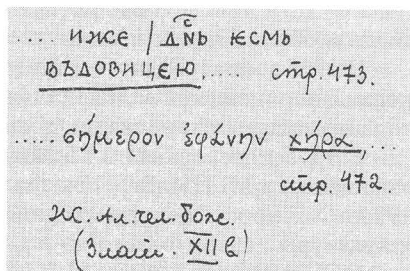 ..... ижє / днⷭ҇ь ѥсмь
въдовицєю, .... стр. 473.
..... σήμερον ἐφάνην χήρα, ...
стр. 472.
Жс. Ал. чел. бож.
(Злат. XII в)